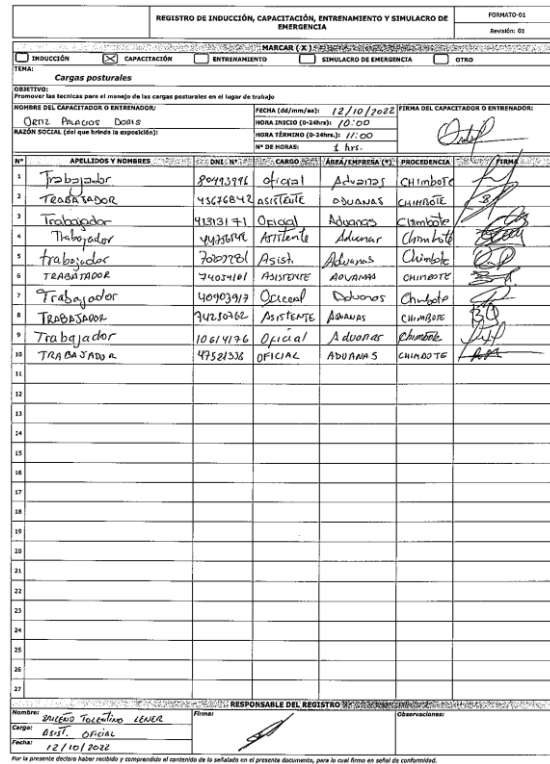 REGISTRO DE INDUCCIÓN, CAPACITACIÓN, ENTRENAMIENTO Y SIMULACRO DE EMERGENCIA
FORMATO-01
Revisión: 01
MARCAR ( X )
INDUCCIÓN X CAPACITACIÓN ENTRENAMIENTO SIMULACRO DE EMERGENCIA OTRO
TEMA:
Cargas posturales
OBJETIVO:
Promover las tecnicas para el manejo de las cargas posturales en el lugar de trabajo
NOMBRE DEL CAPACITADOR O ENTRENADOR:
ORTIZ PALACIOS DORIS
RAZÓN SOCIAL (del que brinda la exposición):
FECHA (dd/mm/aa): 12/10/2022
HORA INICIO (0-24hrs): 10:00
HORA TÉRMINO (0-24hrs): 11:00
N° DE HORAS: 1 hrs.
FIRMA DEL CAPACITADOR O ENTRENADOR:
N° APELLIDOS Y NOMBRES DNI - N° CARGO ÁREA/EMPRESA (*) PROCEDENCIA FIRMA
1 Trabajador oficial Aduanas CHIMBOTE
2 TRABAJADOR 43676842 ASISTENTE ADUANAS CHIMBOTE
3 Trabajador 41313171 Oficial Aduanas Chimbote
4 Trabajador Asistente Aduanas Chimbote
5 trabajador Asist. Aduanas Chimbote
6 TRABAJADOR 74034101 ASISTENTE ADUANAS CHIMBOTE
7 Trabajador 40903917 Oficial Aduanas Chimbote
8 TRABAJADOR 74250762 ASISTENTE ADUANAS CHIMBOTE
9 Trabajador 10614176 Oficial Aduanas Chimbote
10 TRABAJADOR 47521338 OFICIAL ADUANAS CHIMBOTE
11
12
13
14
15
16
17
18
19
20
21
22
23
24
25
26
27
RESPONSABLE DEL REGISTRO
Nombre: BRICEÑO TOLENTINO LENER
Firma:
Observaciones:
Cargo: ASIST. OFICIAL
Fecha: 12/10/2022
Por la presente declaro haber recibido y comprendido el contenido de lo señalado en el presente documento, para lo cual firmo en señal de conformidad.